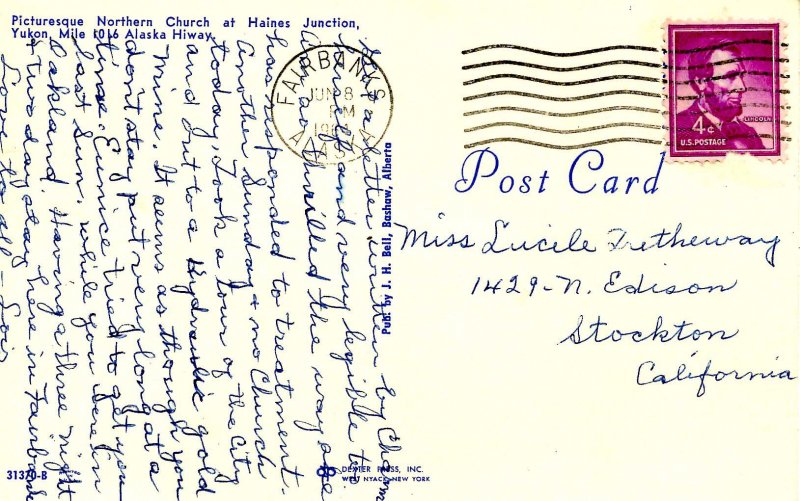 Picturesque Northern Church at Haines Junction,
Yukon, Mile 1016 Alaska Hiway.
FAIRBANKS
JUN 8
PM
ALASKA
LINCOLN
4¢
U.S. POSTAGE
Post Card
Miss Lucile Tretheway
1429 - N. Edison
Stockton
California
Had a letter written by Charm
herself and very legible too.
are so thrilled the way she
has responded to treatment.
Another Sunday & no Church
today. Took a tour of the City
and out to a Hydraulic gold
mine. It seems as though you
don't stay put very long at a
time. Eunice tried to get you
last Sun. while you were in
Oakland. Having a three night
& two day stay here in Fairbanks
Love to all - Lois
Publ. by J. H. Bell, Bashaw, Alberta
31370-B
DEXTER PRESS, INC.
WEST NYACK, NEW YORK